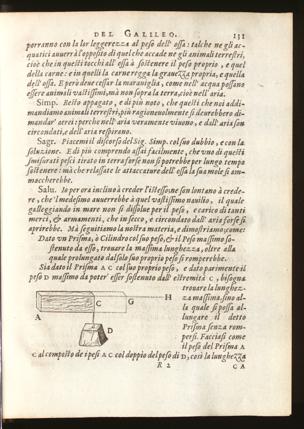 DEL GALILEO. 131
porranno con la lor leggerezza al peso dell' ossa: talche ne gli ac-
quatici auuerrà l'opposito di quel che accade ne gli animali terrestri,
cioè che in questi tocchi all' ossa à sostenere il peso proprio, e quel
della carne: e in quelli la carne regga la grauezza propria, e quella
dell' ossa. E però deue cessar la marauiglia, come nell' acqua possano
essere animali vastissimi, mà non sopra la terra, cioè nell' aria.
Simp. Resto appagato, e di più noto, che questi che noi addi-
mandiamo animali terrestri, più ragioneuolmente si deurebbero di-
mandar' aerei: perche nell' aria veramente viuono, e dall' aria son
circondati, e dell' aria respirano.
Sagr. Piacemi il discorso del Sig. Simp. col suo dubbio, e con la
soluzione. E di più comprendo assai facilmente, che vno di questi
smisurati pesci tirato in terra forse non si potrebbe per lungo tempo
sostenere: mà che relassate le attaccature dell' ossa la sua mole si am-
maccherebbe.
Salu. Io per ora inclino à creder l'istesso; ne son lontano à crede-
re, che 'l medesimo auuerrebbe à quel vastissimo nauilio, il quale
galleggiando in mare non si dissolue per il peso, e carico di tanti
merci, & armamenti, che in secco, e circondato dall' aria forse si
aprirebbe. Mà seguitiamo la nostra materia, e dimostriamo, come:
Dato vn Prisma, ò Cilindro col suo peso, & il Peso massimo so-
stenuto da esso, trouare la massima lunghezza, oltre alla
quale prolungato dal solo suo proprio peso si romperebbe.
Sia dato il Prisma A C col suo proprio peso, e dato parimente il
peso D massimo da poter' esser sostenuto dall' estremità C, bisogna
trouare la lunghez-
za massima, sino al-
la quale si possa al-
lungare il detto
Prisma senza rom-
persi. Facciasi come
il peso del Prisma A
A C G H D
C al composto de i pesi A C col doppio del peso di D, così la lunghezza
R 2 CA